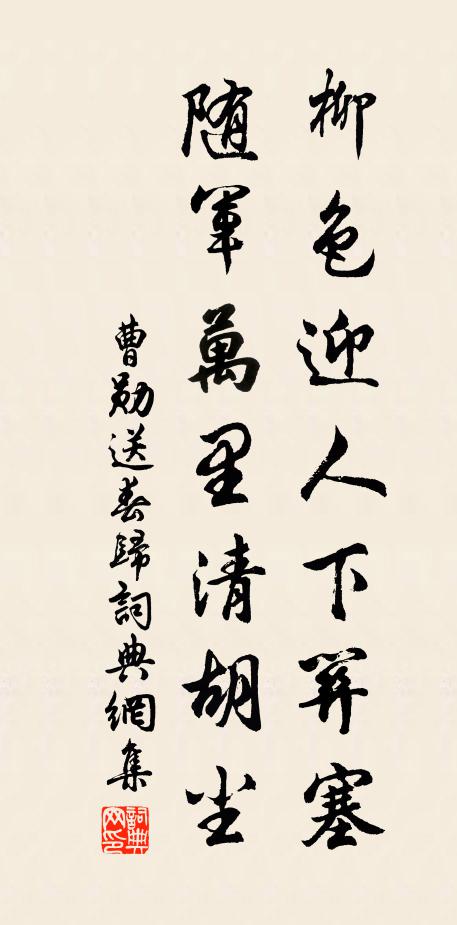 柳色迎人下關塞
随軍萬里清胡尘
曹勛送春歸詞典網集
詞典
网印